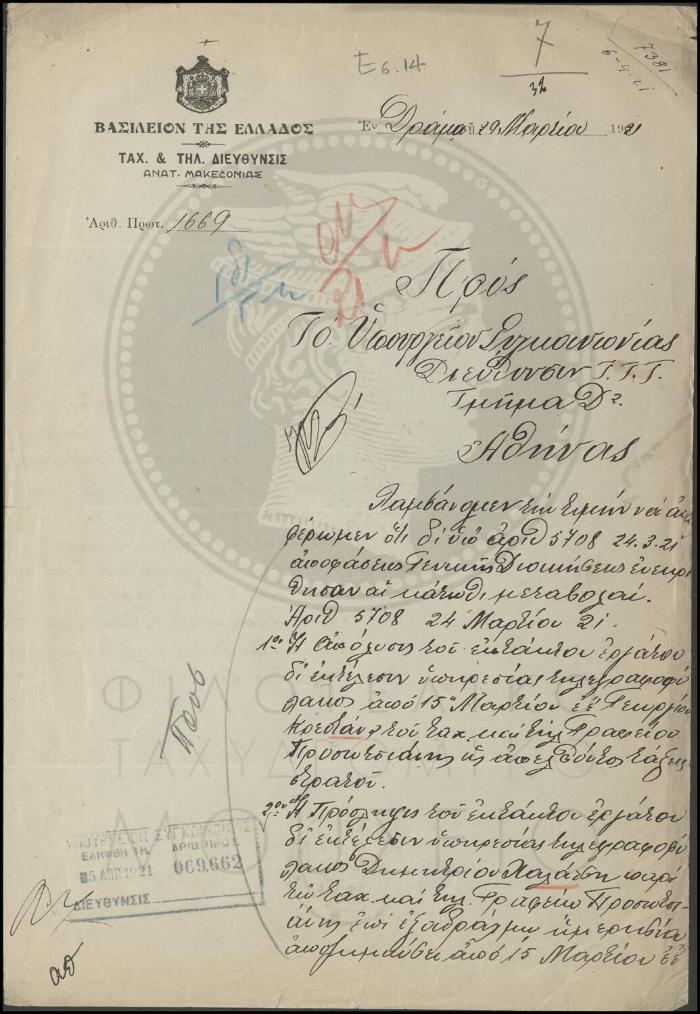 Ε 6.14
7
32
7381
6-4-21
ΒΑΣΙΛΕΙΟΝ ΤΗΣ ΕΛΛΑΔΟΣ
ΤΑΧ. & ΤΗΛ. ΔΙΕΥΘΥΝΣΙΣ
ΑΝΑΤ. ΜΑΚΕΔΟΝΙΑΣ
Ἐν Δράμᾳ τῇ 29 Μαρτίου 1921
Ἀριθ. Πρωτ. 1669
Πρός
Τό Ὑπουργεῖον Συγκοινωνίας
Διεύθυνσιν Τ.Τ.Τ.
Τμῆμα Δον
Ἀθήνας
Λαμβάνομεν τήν τιμήν νά ἀνα
φέρωμεν ὅτι δι' ὑπ' ἀριθ 5708 24.3.21
ἀποφάσεως Γενικῆς Διοικήσεως ἐνεκρί
θησαν αἱ κάτωθι μεταβολαί.
Ἀριθ 5708 24 Μαρτίου 21.
1ον Ἡ ἀπόλυσις τοῦ ἐκτάκτου ἐργάτου
δι' ἐκτέλεσιν ὑπηρεσίας τηλεγραφοφύ
λακος ἀπό 15 Μαρτίου ἐ.ἔ. Γεωργίου
τοῦ ταχ. καί τηλ. Γραφείου
Προσωτσιάνης ὡς ἀπελθόντος τάξεις
στρατοῦ.
2ον Ἡ Πρόσληψις τοῦ ἐκτάκτου ἐργάτου
δι' ἐκτέλεσιν ὑπηρεσίας τηλεγραφοφύ
λακος Δημητρίου Χαλάτση παρά
τῷ ταχ. καί τηλ. Γραφείῳ Προσωτσι-
άνης ἐπί ἑξαδράχμῳ ἡμερησίᾳ
ἀποζημιώσει ἀπό 15 Μαρτίου ἐ.ἔ.
ΥΠΟΥΡΓΕΙΟΝ ΣΥΓΚΟΙΝΩΝΙΑΣ
ΕΛΗΦΘΗ ΤΗ ΑΡΙΘ. ΠΡΩΤ.
5 ΑΠΡ 1921 069,662
ΔΙΕΥΘΥΝΣΙΣ